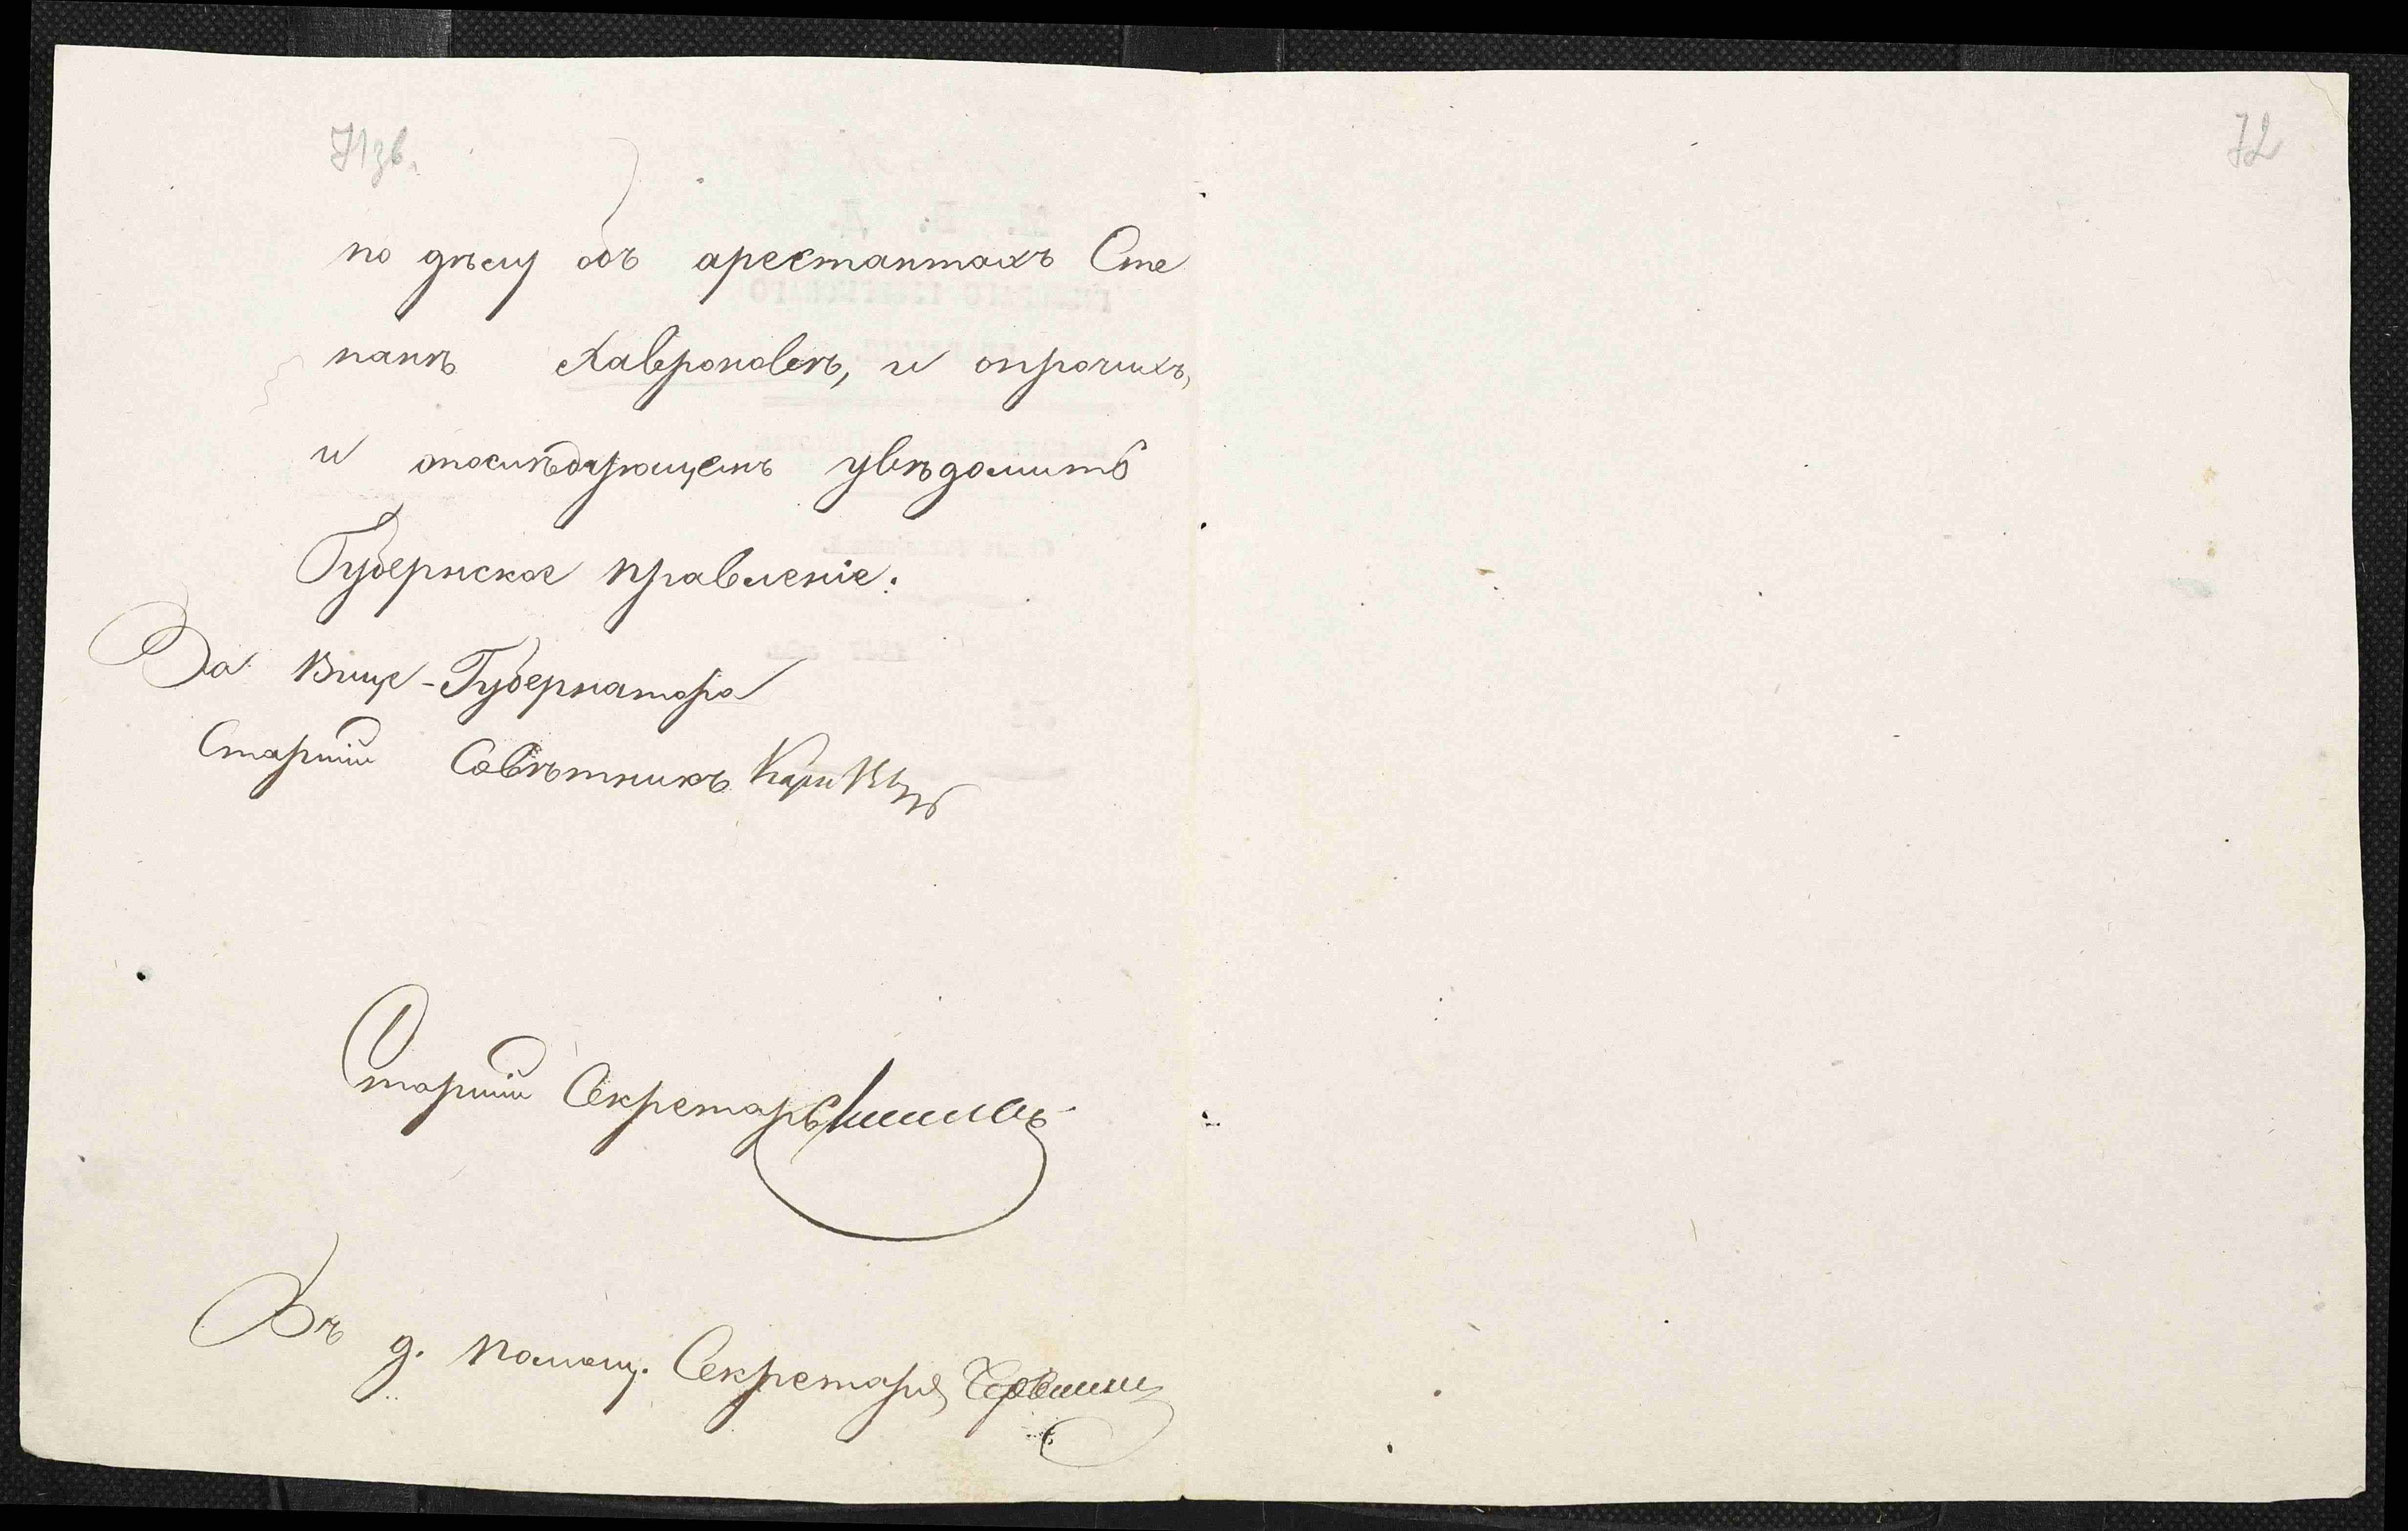 71зв.
72
по дѣлу объ арестантахъ Сте
панѣ Хавроновѣ, и опрочихъ,
и опослѣдующемъ увѣдомить
Губернское правленіе.
За Вице-Губернатора
Старшій Совѣтникъ
Старшій Секретарь
Въ д. Помощ. Секретаря